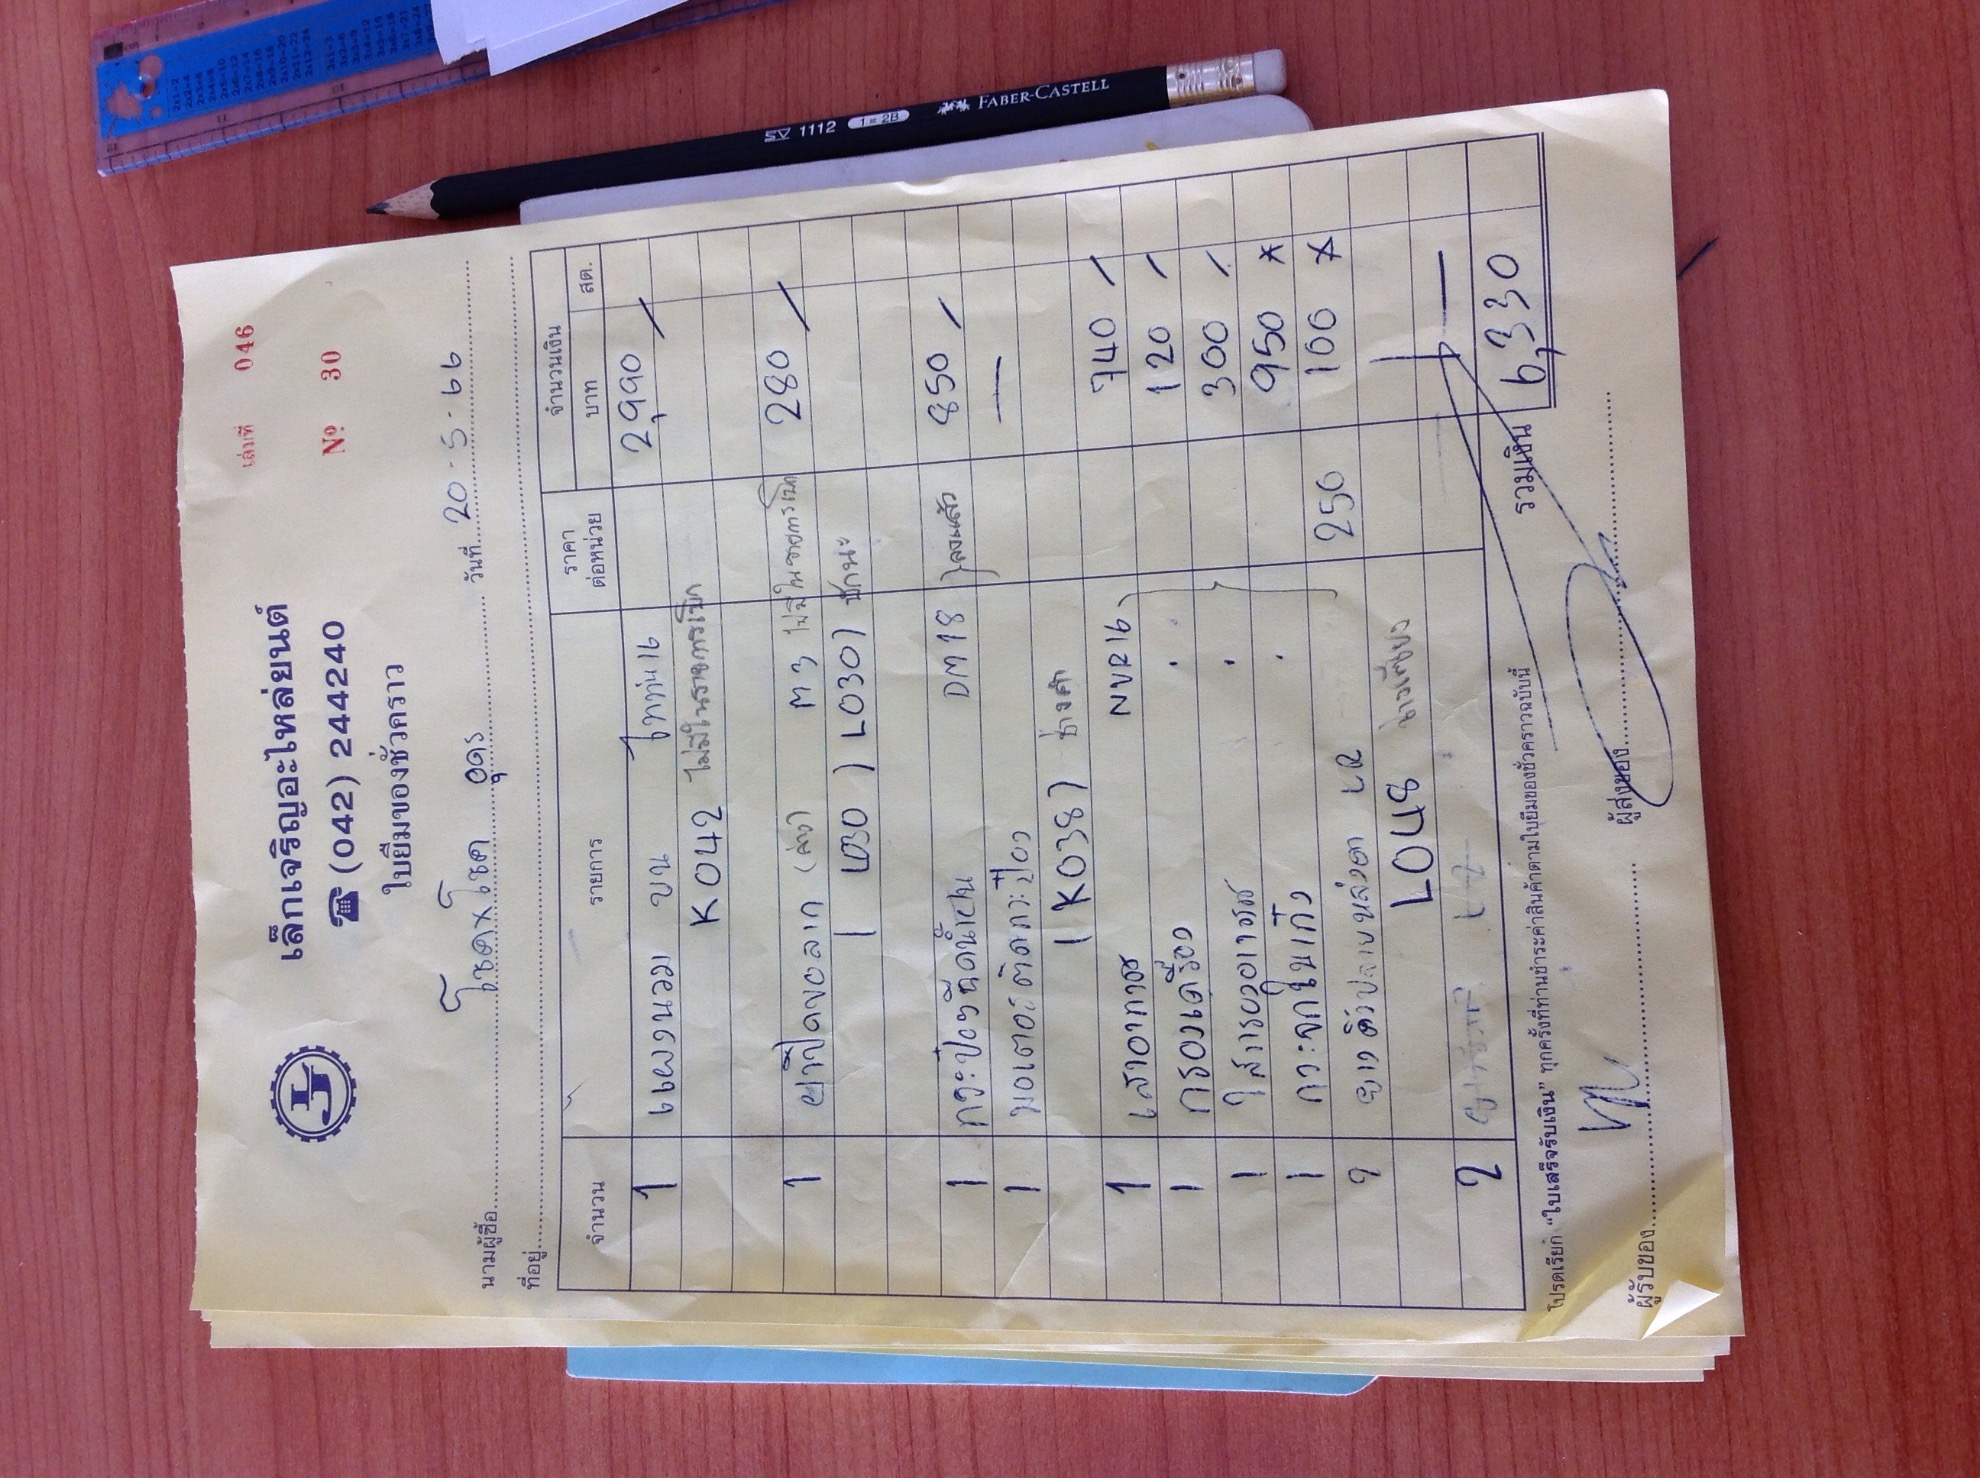 เล่มที่ 046
เล็กเจริญอะไหล่ยนต์
☎ (042) 244240
Nº 30
ใบยืมของชั่วคราว
นามผู้ซื้อ โชคxโชค อุดร วันที่ 20-5-66
ที่อยู่
จำนวน รายการ ราคาต่อหน่วย จำนวนเงิน
บาท สต.
1 แผงนวม บน ไททัน16 2,990 /
K042 ไม่มีในรายการเบิก
1 ยางปิดขอลาก (ล่าง) M3 ไม่มีในรายการเบิก 280 /
L030 ) L030)
1 กระป๋องฉีดน้ำฝน DM18 ลงแล้ว 850 /
1 มอเตอร์ติดกระป๋อง —
(K038) ช่างคำ
1 เสาอากาศ NVR16 740 /
1 กรองเครื่อง 120 /
1 ไส้กรองอากาศ 300 /
1 กระจกในเก๋ง 950 *
2 LR 250 100 *
L048
2
รวมเงิน 6,330
โปรดเรียก "ใบเสร็จรับเงิน" ทุกครั้งที่ท่านชำระค่าสินค้าตามใบยืมของชั่วคราวฉบับนี้
ผู้รับของ ผู้ส่งของ
SV 1112 1=2B FABER-CASTELL